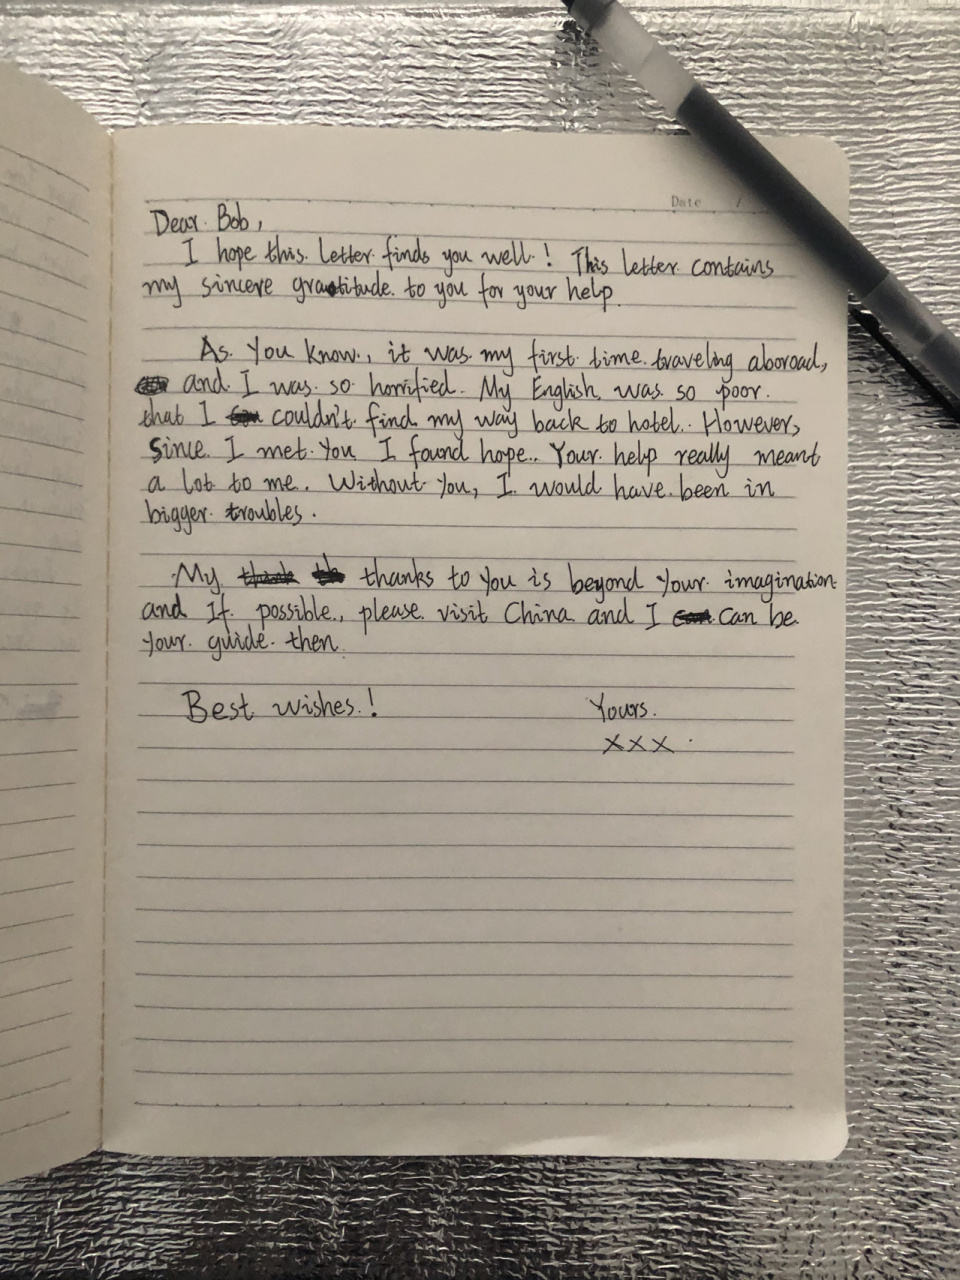 Date /
Dear Bob,
I hope this letter finds you well! This letter contains
my sincere gratitude to you for your help.
As you know, it was my first time traveling aboroad,
and I was so horrified. My English was so poor
that I couldn't find my way back to hotel. However,
since I met you I found hope. Your help really meant
a lot to me. Without you, I would have been in
bigger troubles.
My thanks to you is beyond your imagination
and If possible, please visit China and I can be
your guide then.
Best wishes!
Yours.
XXX.